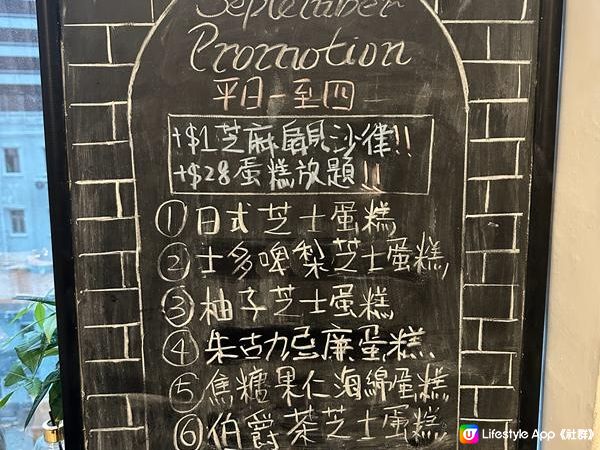 September
Promotion
平日一至四
+$1芝麻扇貝沙律!!
+$28蛋糕放題!!
①日式芝士蛋糕
②士多啤梨芝士蛋糕
③柚子芝士蛋糕
④朱古力豆腐蛋糕
⑤焦糖果仁海綿蛋糕
⑥伯爵茶芝士蛋糕
U Lifestyle App《社群》